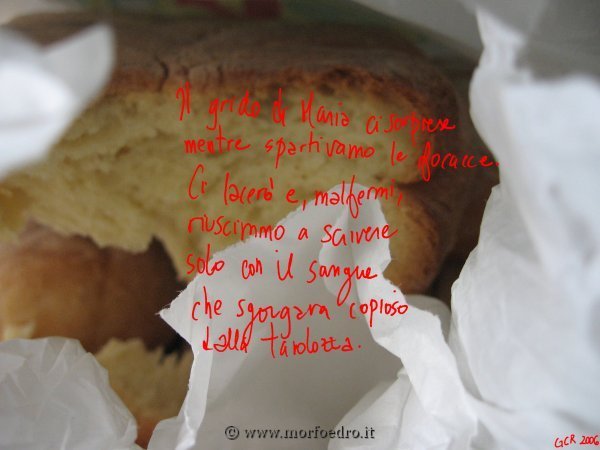 Il grido di Maria ci sorprese
mentre spartivamo le focacce.
Ci lacerò e, malfermi,
riuscimmo a scrivere
solo con il sangue
che sgorgava copioso
dalla tavolozza.
© www.morfoedro.it
GCR 2006